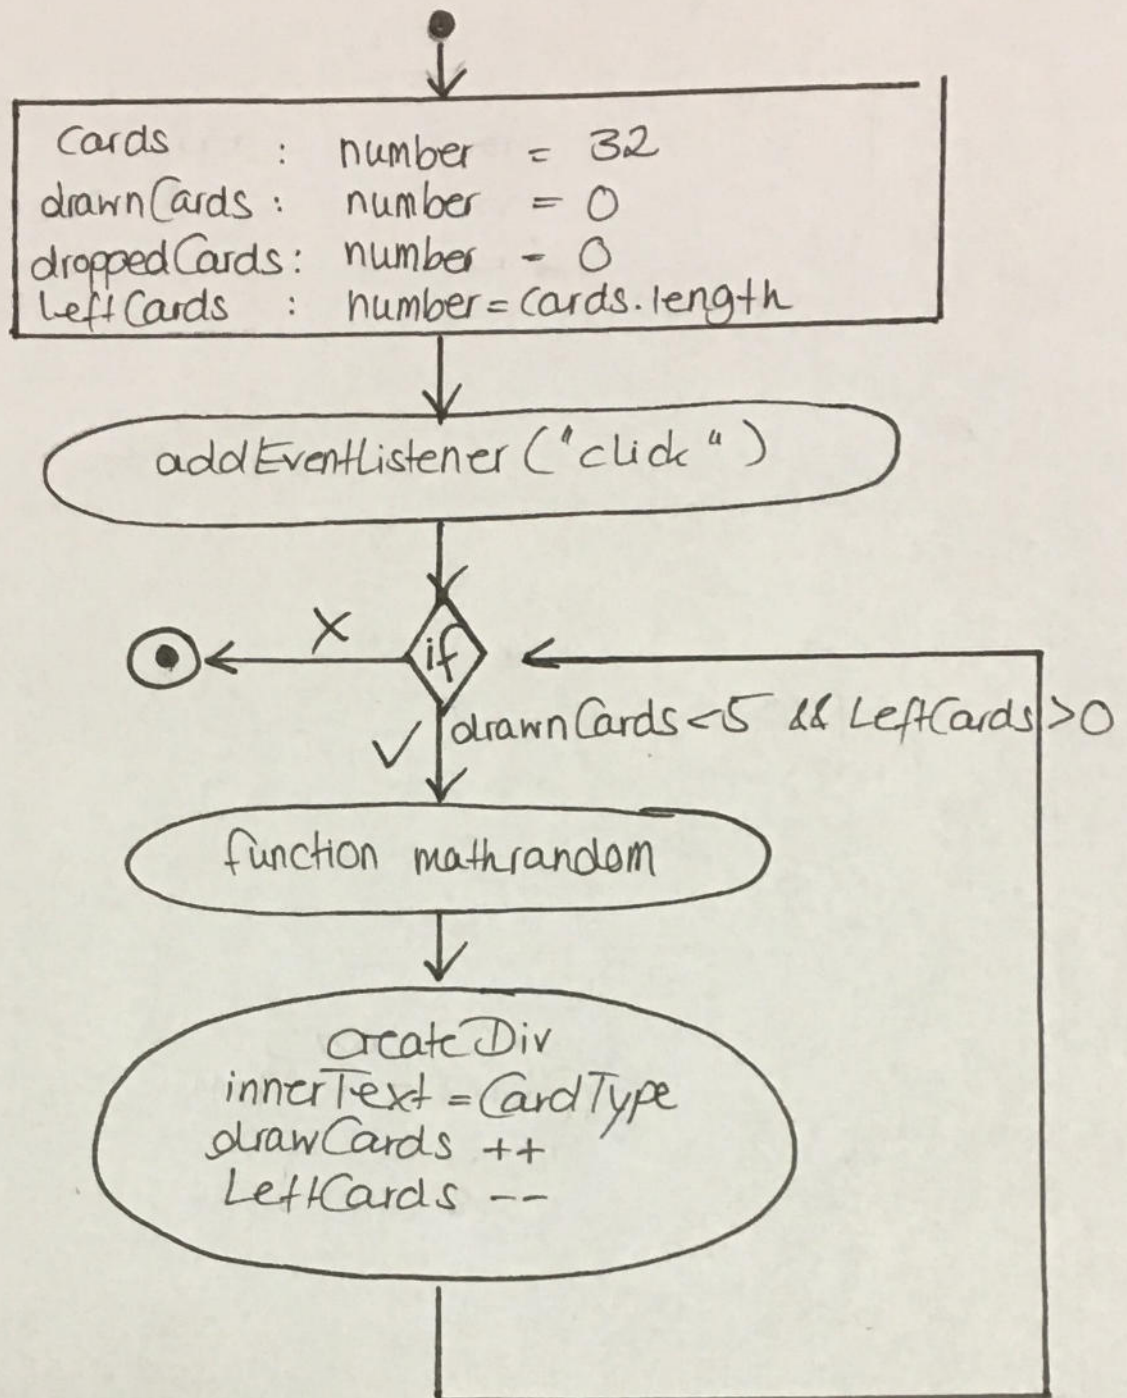 Cards : number = 32
drawnCards : number = 0
droppedCards : number - 0
LeftCards : number = cards.length
addEventListener ("click")
X
if
drawnCards <5 && LeftCards >0
✓
function mathrandom
createDiv
innerText = CardType
drawCards ++
LeftCards --